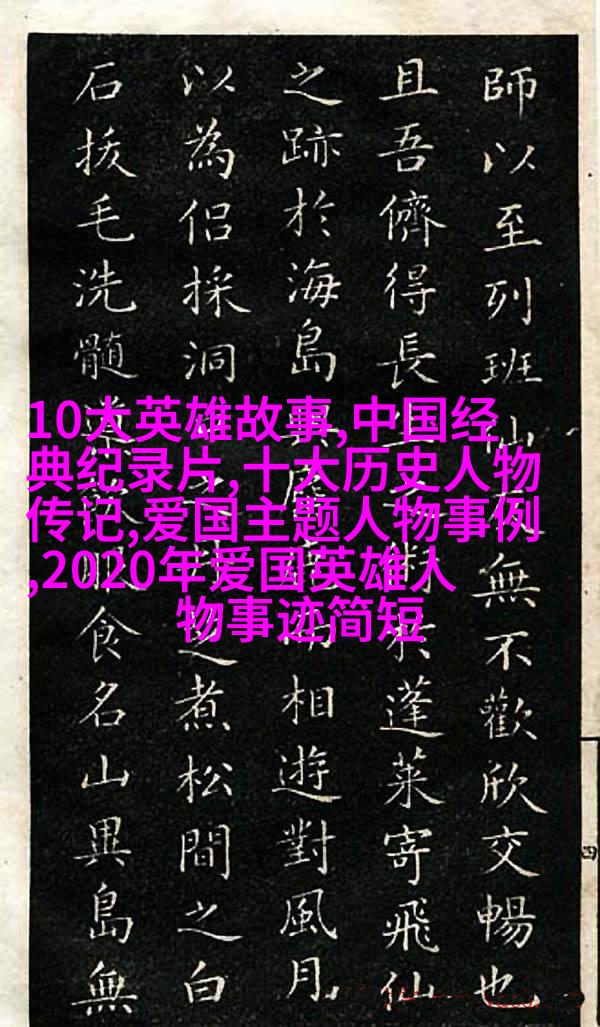 師以至列班仙無不歡欣交暢也
且吾儕得長於蓬萊寄飛仙
之跡於海島相遊對風月
以為侶採洞之煮松間之白
石拔毛洗髓服食名山異島無
10大英雄故事,中国经
典纪录片,十大历史人物
传记,爱国主题人物事例
,2020年爱国英雄人
物事迹简短